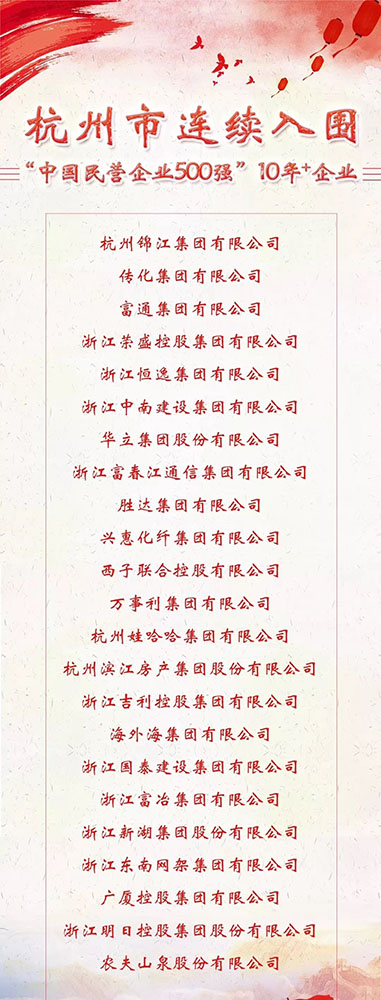 杭州市连续入围
“中国民营企业500强”10年+企业
杭州锦江集团有限公司
传化集团有限公司
富通集团有限公司
浙江荣盛控股集团有限公司
浙江恒逸集团有限公司
浙江中南建设集团有限公司
华立集团股份有限公司
浙江富春江通信集团有限公司
胜达集团有限公司
兴惠化纤集团有限公司
西子联合控股有限公司
万事利集团有限公司
杭州娃哈哈集团有限公司
杭州滨江房产集团股份有限公司
浙江吉利控股集团有限公司
海外海集团有限公司
浙江国泰建设集团有限公司
浙江富冶集团有限公司
浙江新湖集团股份有限公司
浙江东南网架集团有限公司
广厦控股集团有限公司
浙江明日控股集团股份有限公司
农夫山泉股份有限公司